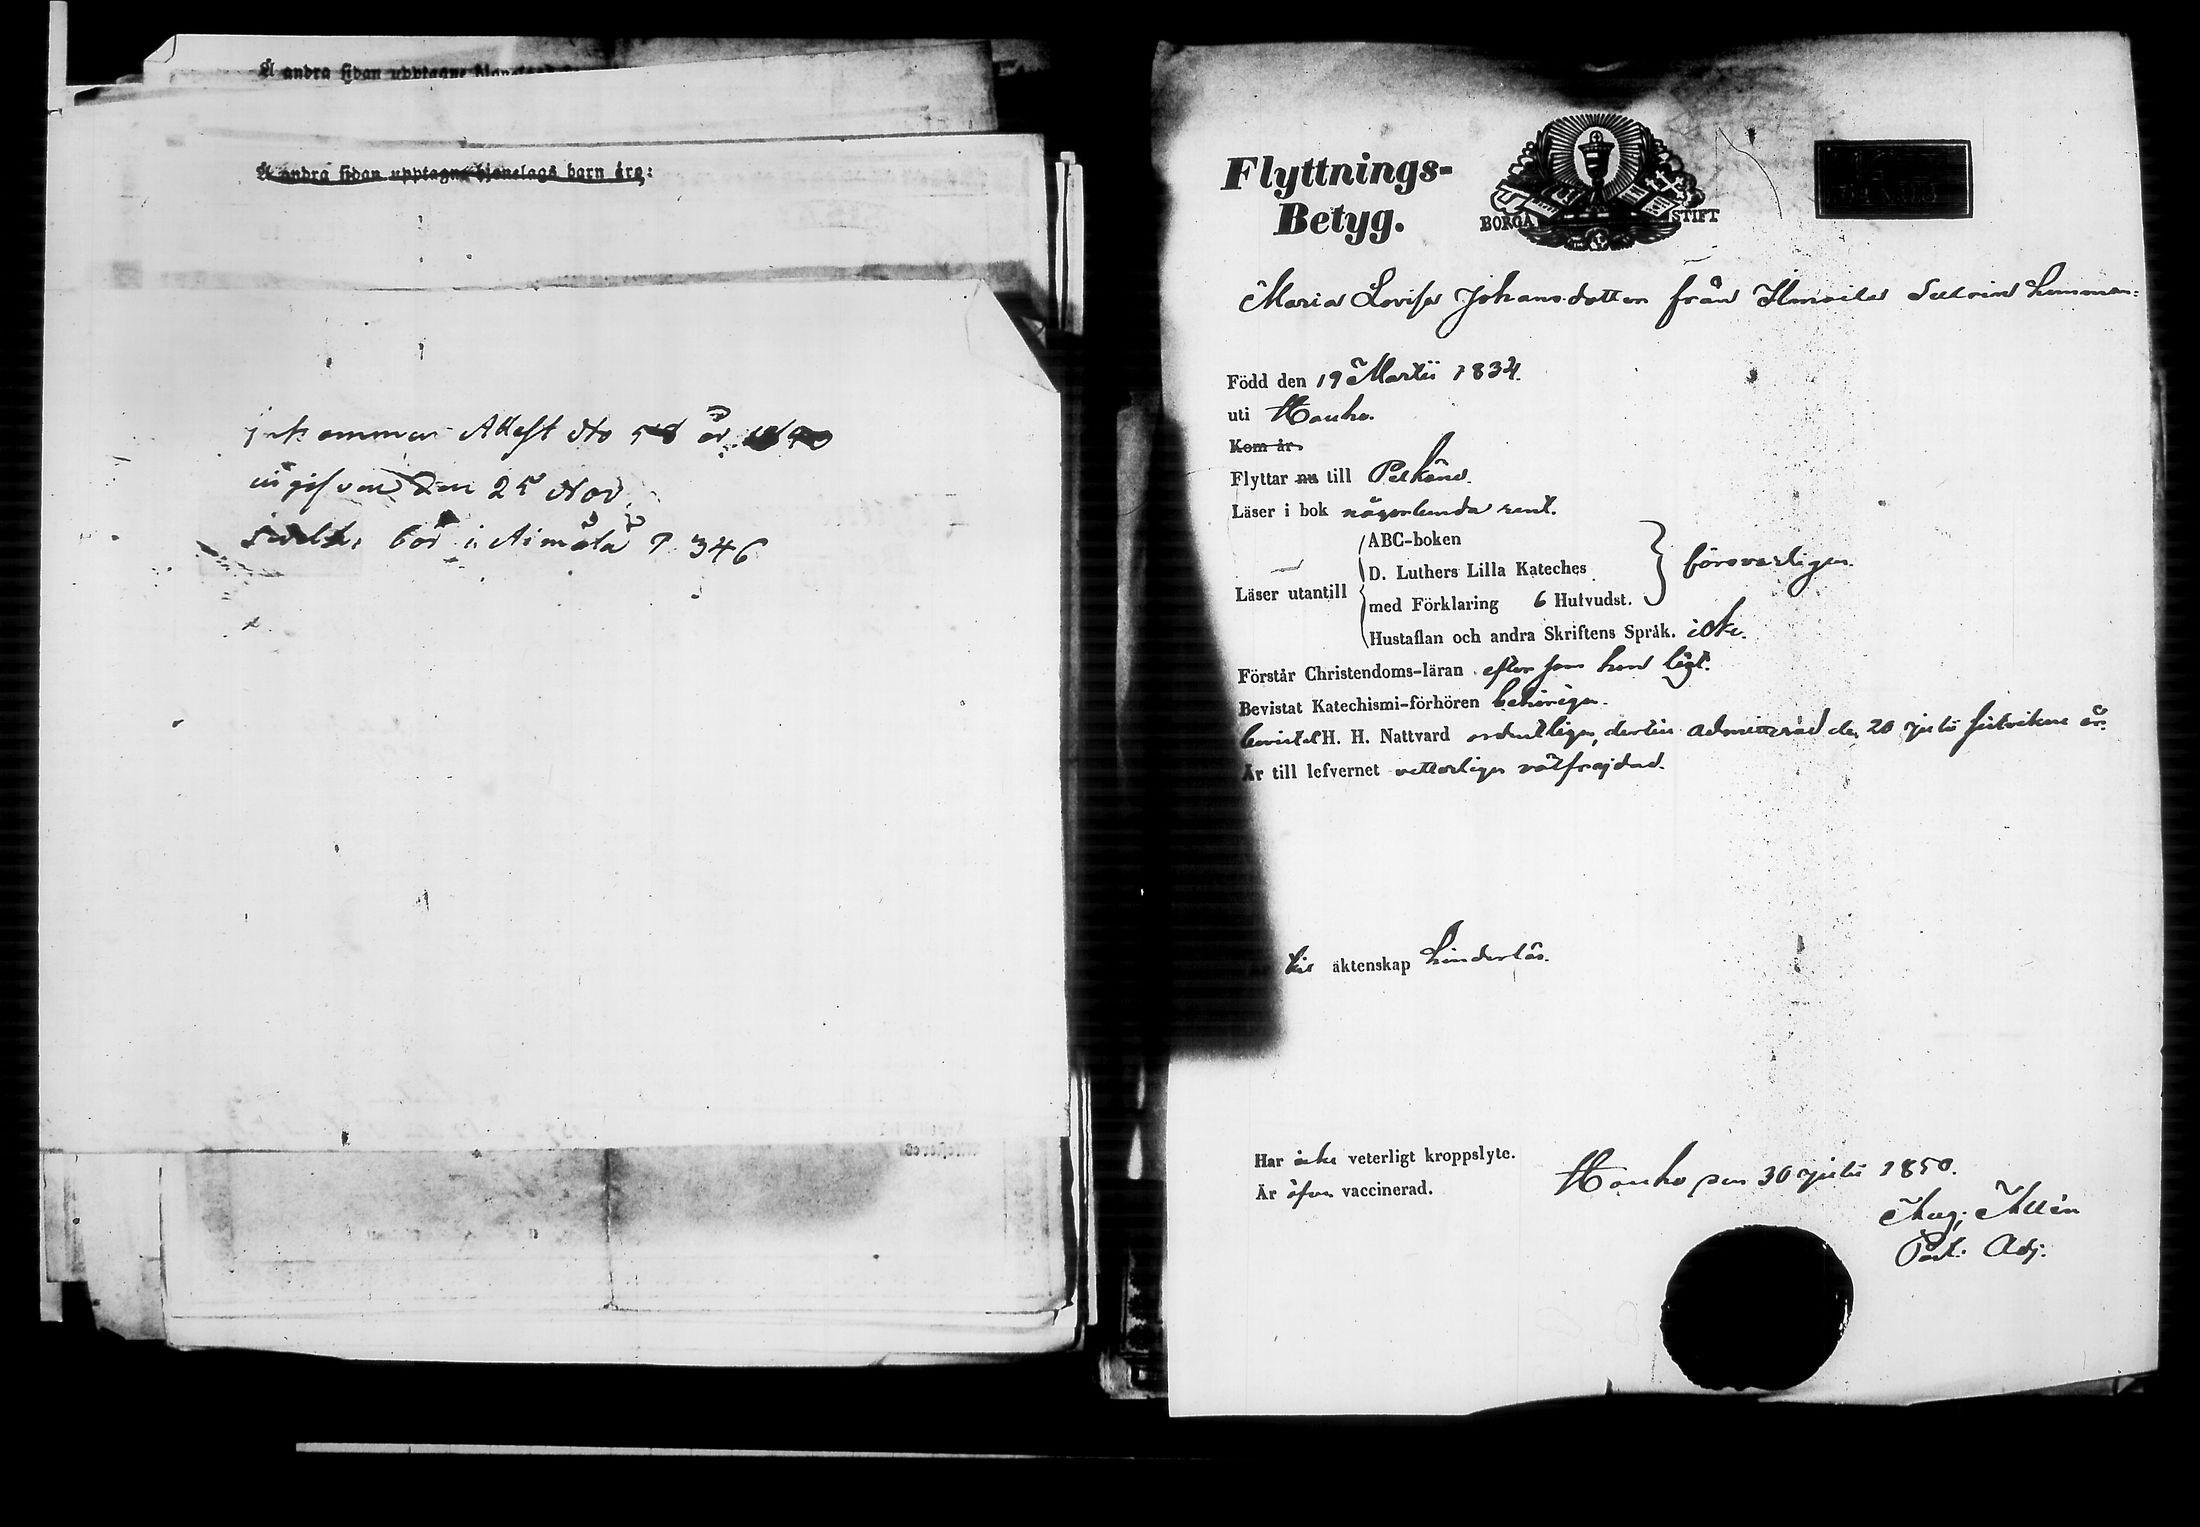 Å andra sidan upptagne
Å andra sidan upptagne hjonelags barn äro:
inkommen Attest No 58 år
ingifven den 25 Nov.
bor i Aimälä P 346
Flyttnings-
Betyg.
BORGÅ STIFT
Maria Lovisa Johansdotter från Ilmoila
Född den 19 Martii 1834.
uti Hauho.
Kom år
Flyttar nu till Pelkäne.
Läser i bok någorlunda rent.
ABC-boken
D. Luthers Lilla Kateches
Läser utantill
med Förklaring 6 Hufvudst.
försvarligen
Hustaflan och andra Skriftens Språk. icke.
Förstår Christendoms-läran efter som hon läst.
Bevistat Katechismi-förhören behörigen.
bevistat H. H. Nattvard ordentligen, dertill admitterad den 20 Julii sistvikne år.
Är till lefvernet vetterligen välfrejdad.
till äktenskap hinderlös.
Har icke veterligt kroppslyte.
Är äfven vaccinerad.
Hauho den 30 Julii 1850.
Aug. Allén
Past. Adj.